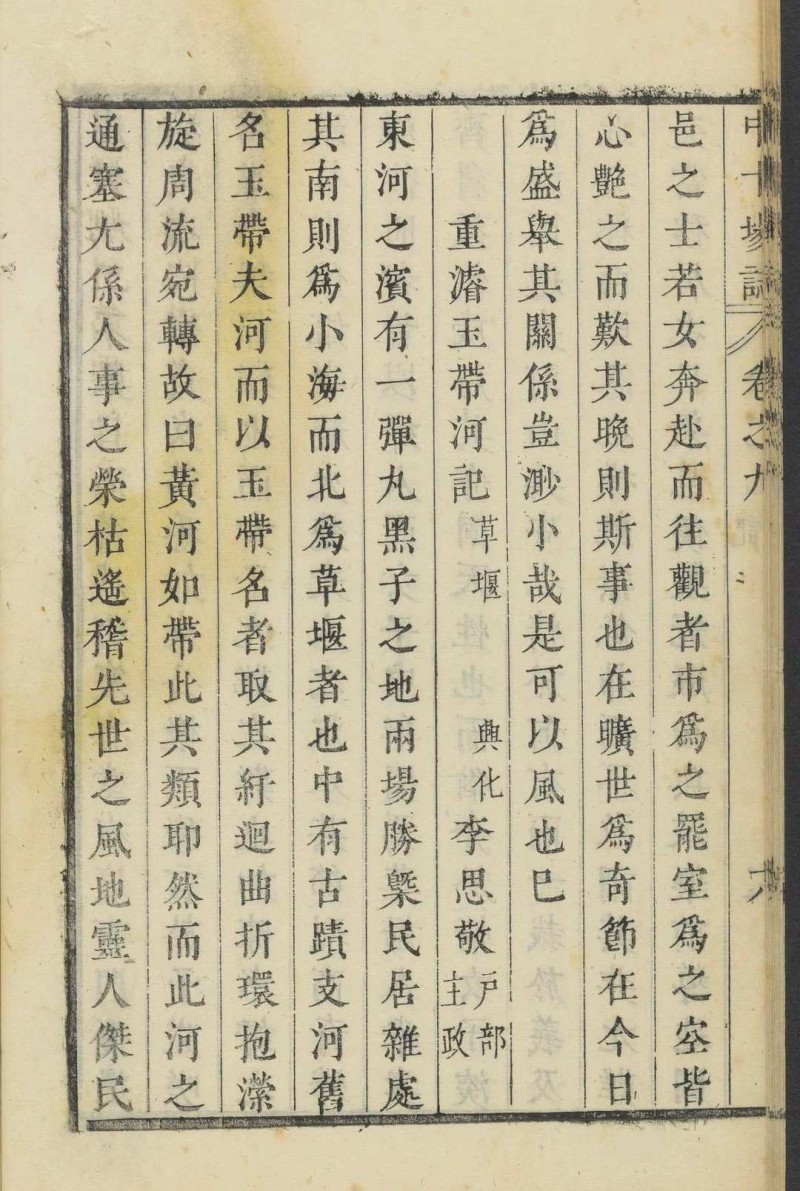 中十場誌 卷之九 六
邑之士若女奔赴而往觀者市爲之罷室爲之空皆
心艶之而歎其晩則斯事也在曠世爲奇節在今日
爲盛舉其關係豈渺小哉是可以風也巳
重濬玉帶河記 草堰 興化 李思敬 戶部主政
東河之濱有一彈丸黑子之地兩場勝槩民居雜處
其南則爲小海而北爲草堰者也中有古蹟支河舊
名玉帶夫河而以玉帶名者取其紆迴曲折環抱瀠
旋周流宛轉故曰黃河如帶此其類耶然而此河之
通塞尤係人事之榮枯遙稽先世之風地靈人傑民